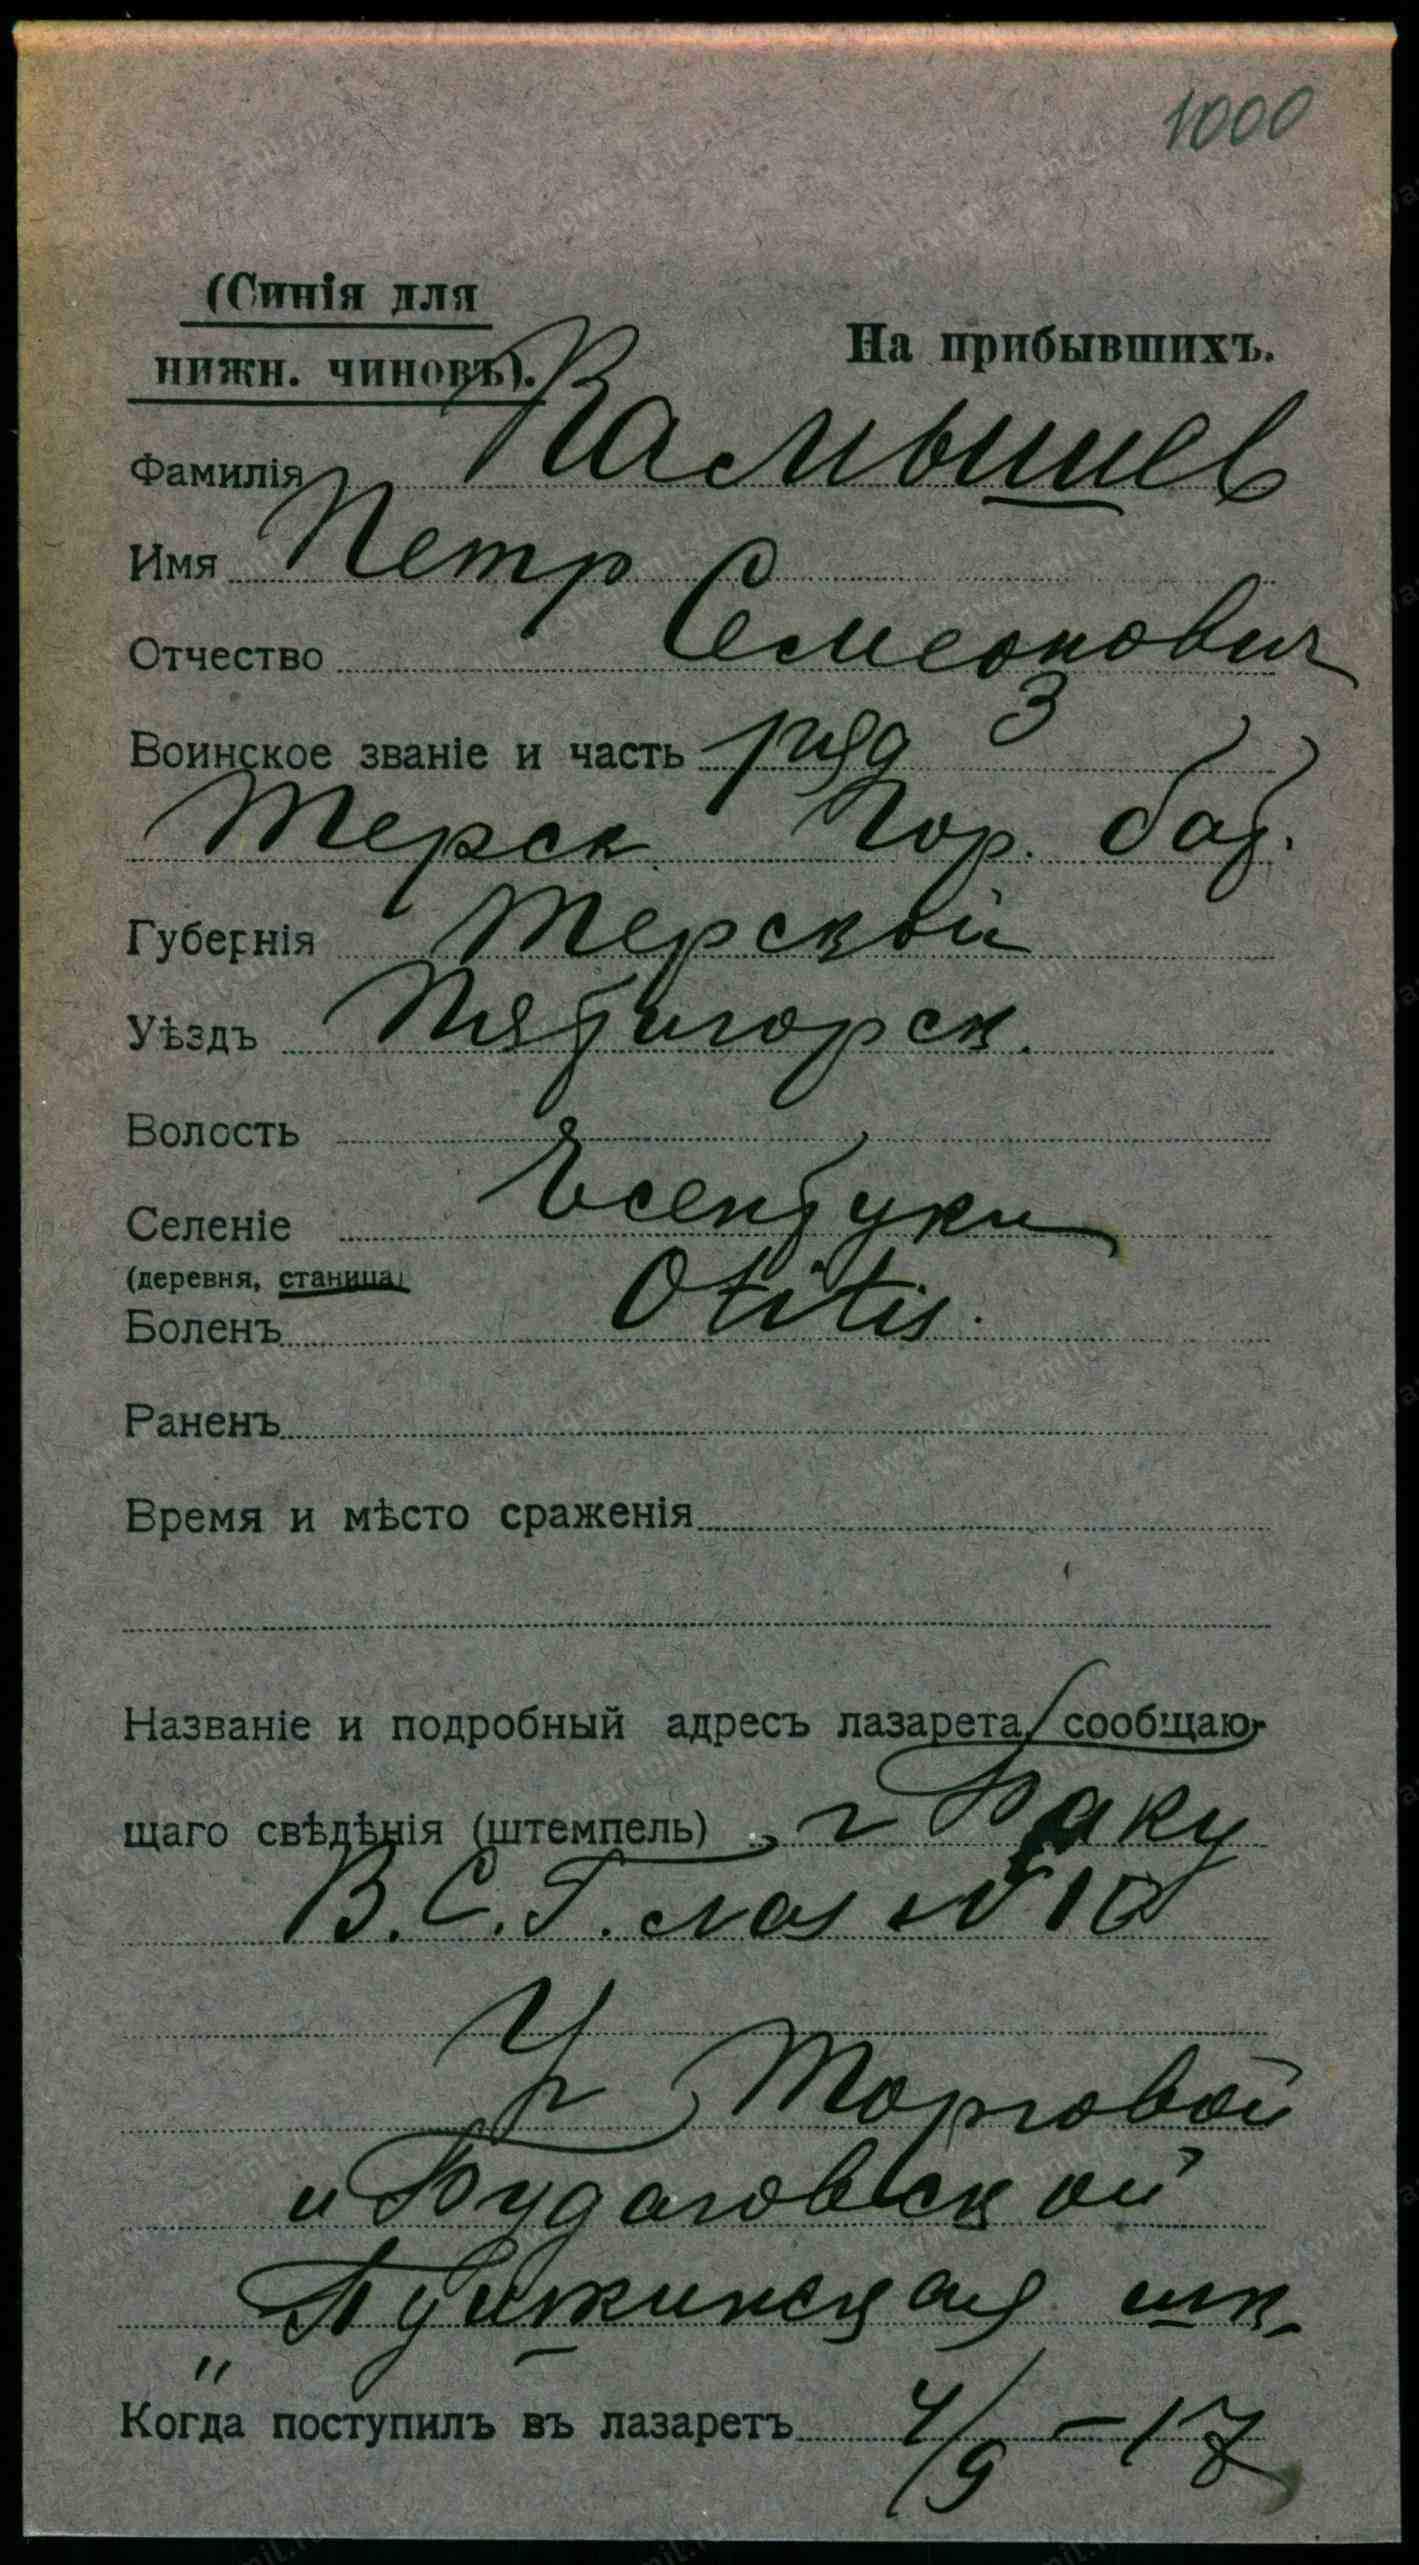 1000
(Синія для
нижн. чиновъ).
На прибывшихъ.
Фамилія Камышев
Имя Петр
Отчество Семеонович
Воинское званіе и часть ряд 3
Терск. Гор. бат.
Губернія Терской
Уѣздъ Пятигорск.
Волость
Селеніе Есентуки
(деревня, станица)
Боленъ Otitis.
Раненъ
Время и мѣсто сраженія
Названіе и подробный адресъ лазарета, сообщаю-
щаго свѣдѣнія (штемпель) г Баку
В. С. Г. лаз № 10
Уг. Торговой
и Будаговской
"Пушкинская шк.
Когда поступилъ въ лазаретъ 4/9 - 17